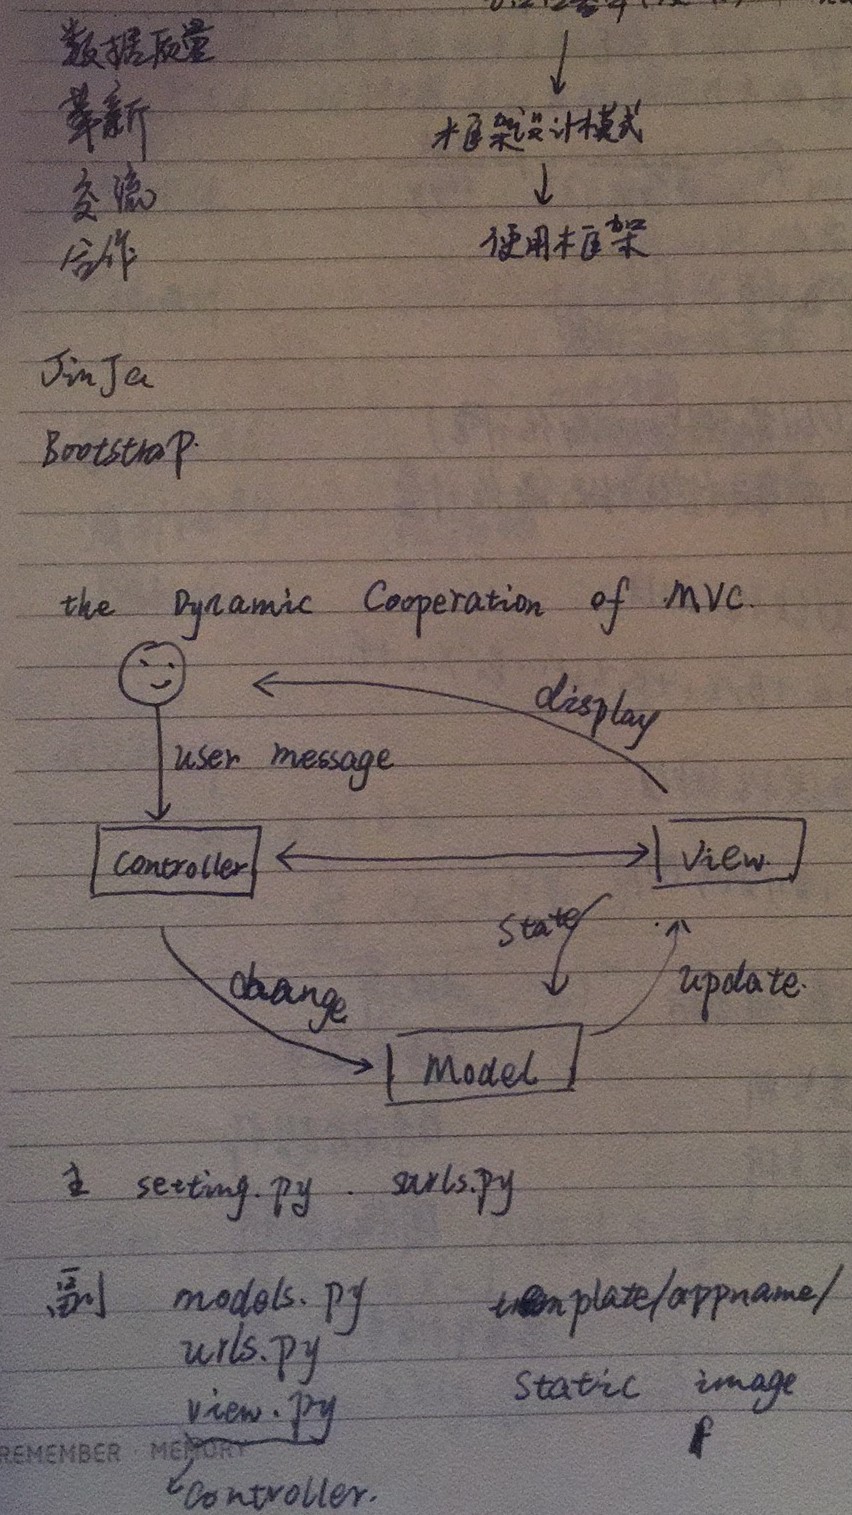 数据质量
革新
交流
合作
框架设计模式
使用框架
JinJa
Bootstrap.
the Dynamic Cooperation of MVC.
display
user message
Controller
View
state
update.
change
Model
主 setting.py . surls.py
副 models.py template/appname/
urls.py
static image
view.py
REMEMBER MEMORY
Controller.